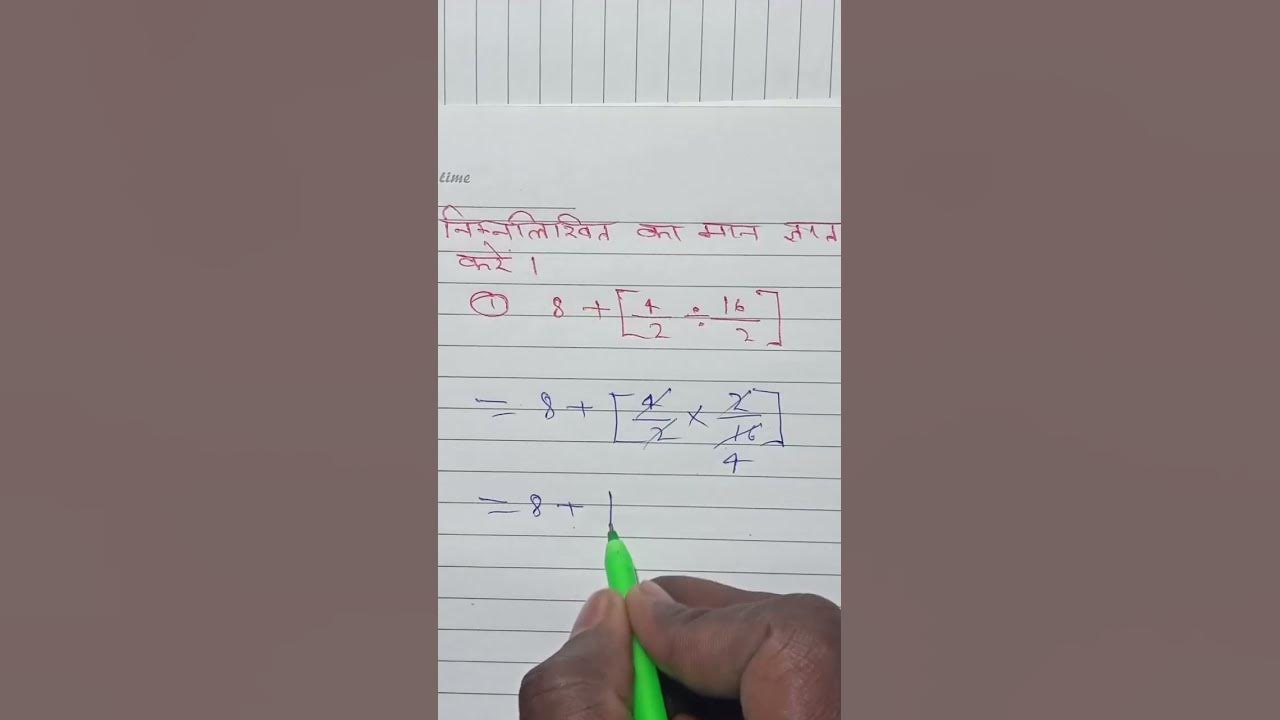 time
निम्नलिखित का मान ज्ञात
करें ।
① 8 + [4/2 ÷ 16/2]
= 8 + [4/2 × 2/16]
4
= 8 + |